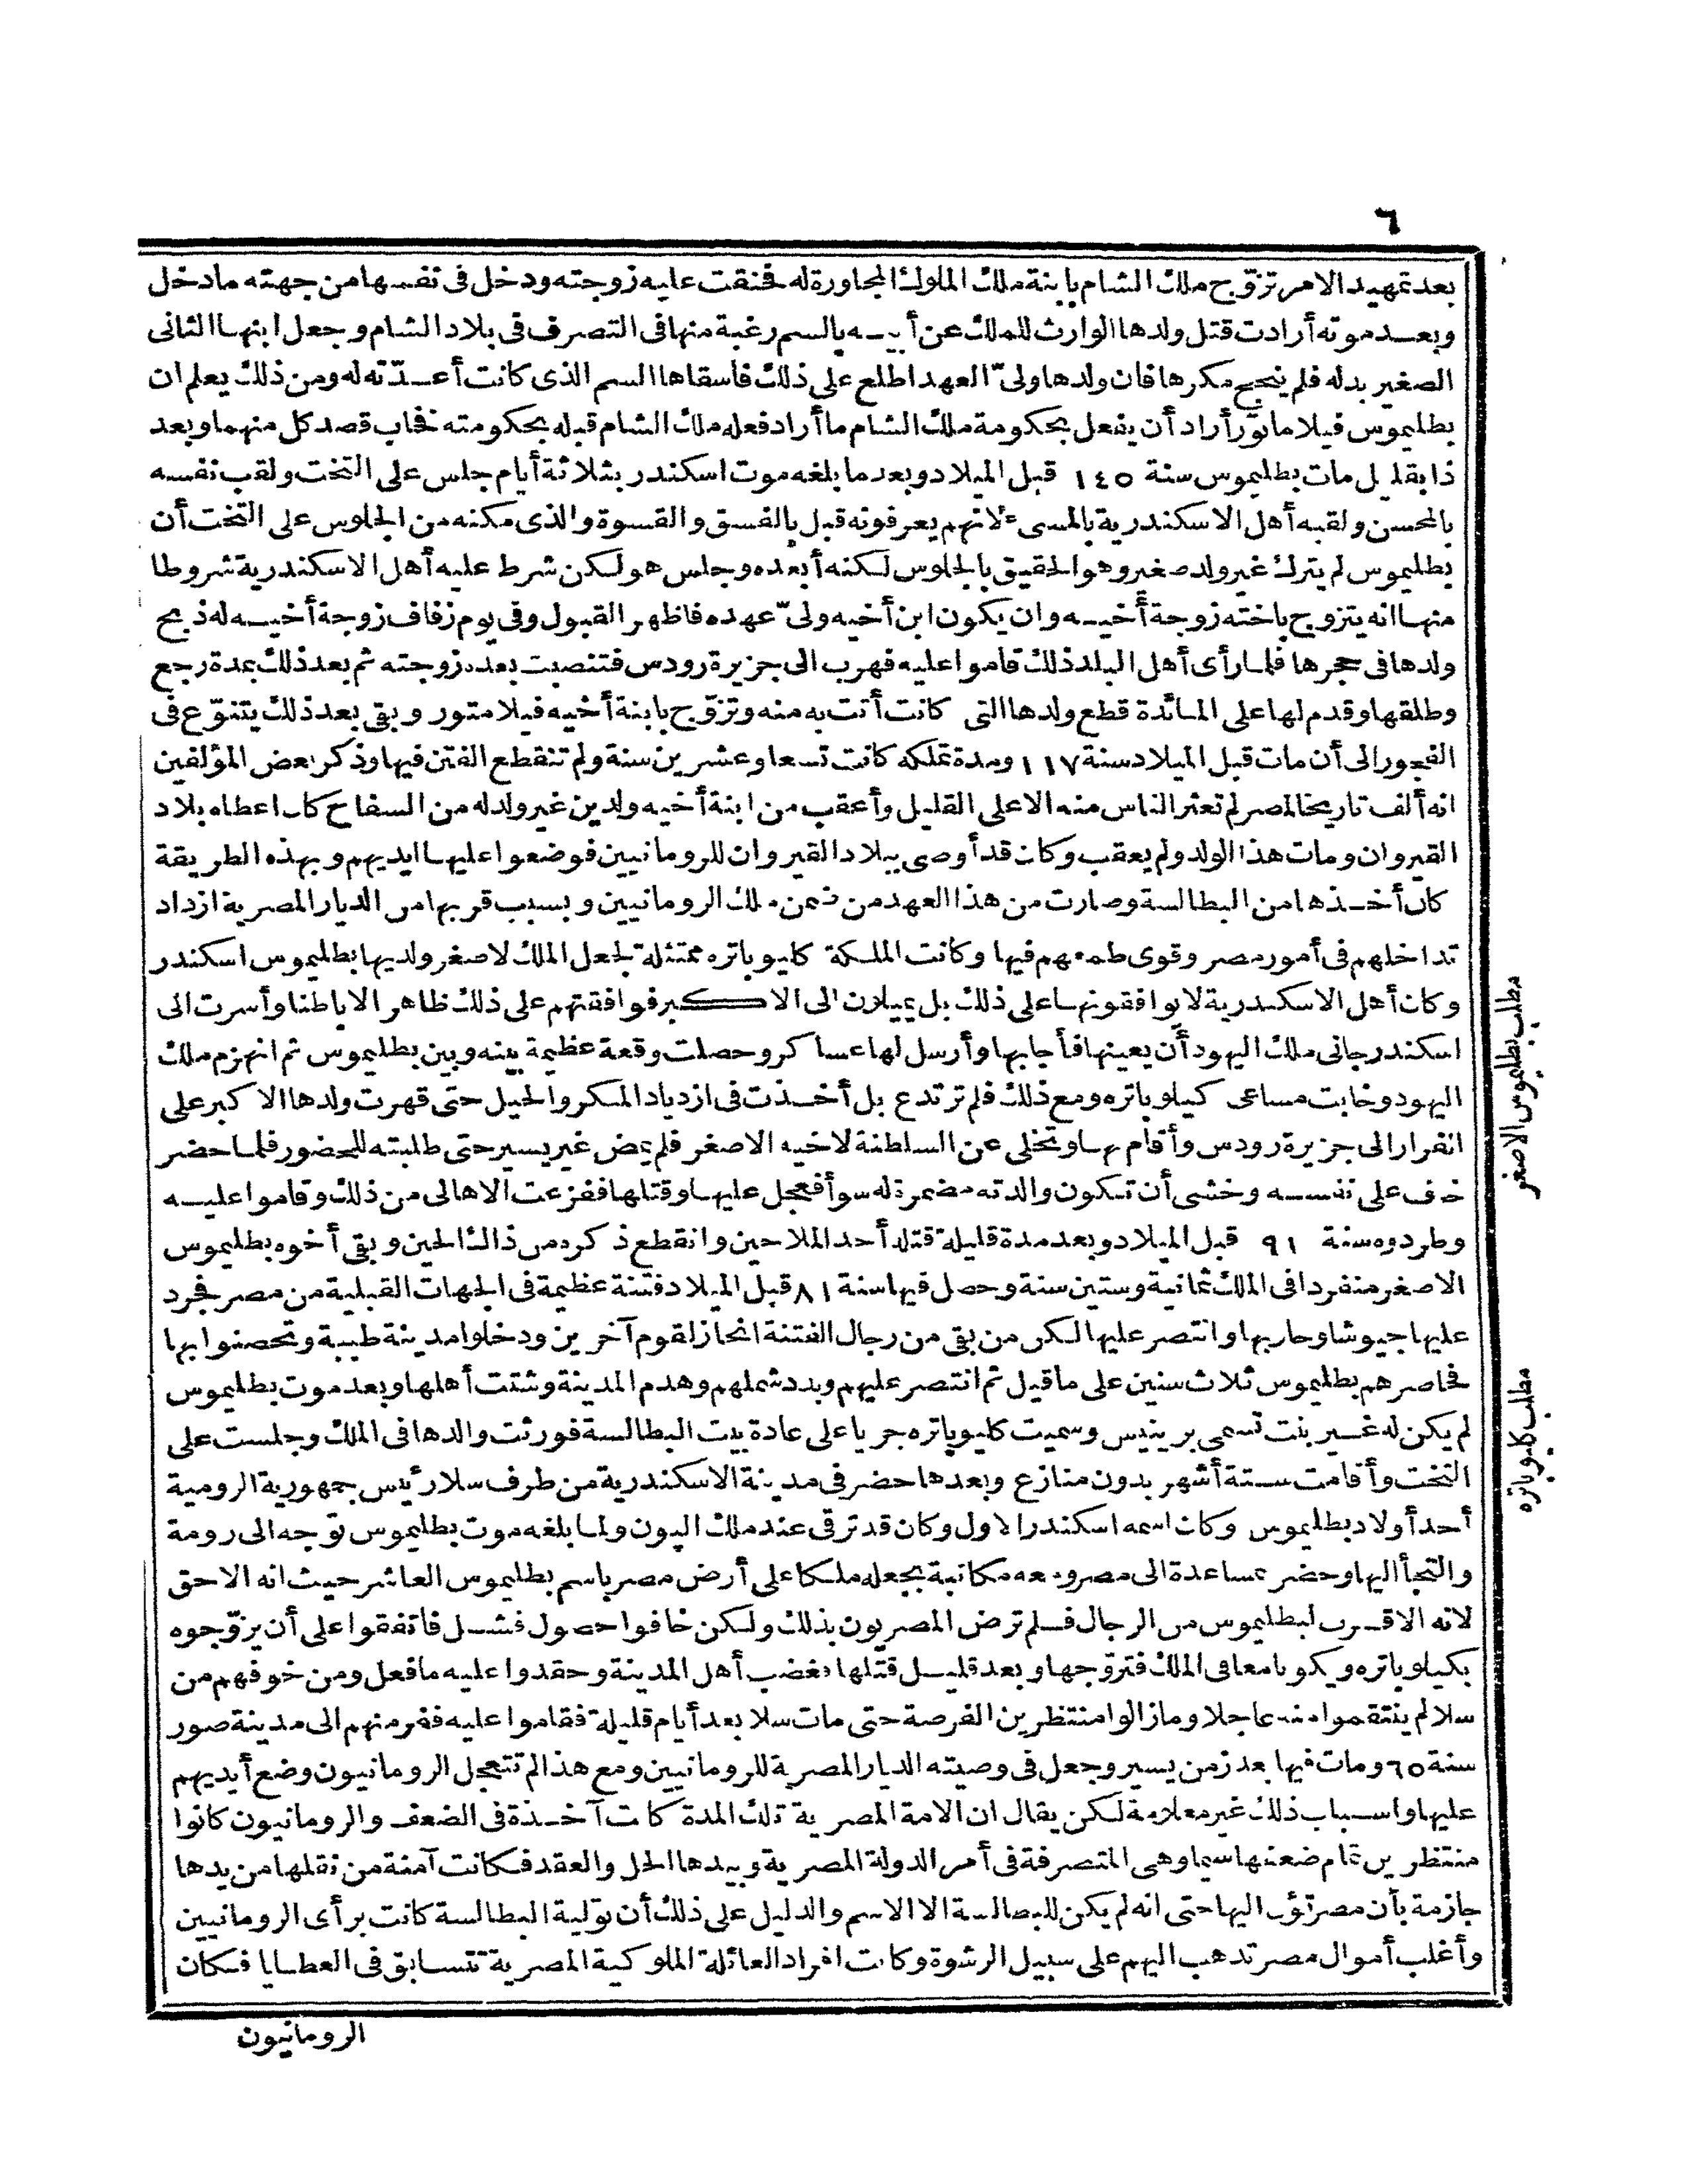 ٦
بعد تمهيد الامر تزوّج ملك الشام بابنة ملك الملوك المجاورة له فحنقت عليه زوجته ودخل فى نفسها من جهته ما دخل
وبعد موته أرادت قتل ولدها الوارث للملك عن أبيه بالسم رغبة منها فى التصرف فى بلاد الشام وجعل ابنها الثانى
الصغير بدله فلم ينجح مكرها فان ولدها ولىّ العهد اطلع على ذلك فأسقاها السم الذى كانت أعدّته له ومن ذلك يعلم ان
بطليموس فيلاماتور أراد أن يفعل بحكومة ملك الشام ما أراد فعله ملك الشام قبله بحكومته فخاب قصد كل منهما وبعد
ذا بقليل مات بطليموس سنة ١٤٥ قبل الميلاد وبعد ما بلغه موت اسكندر بثلاثة أيام جلس على التخت ولقب نفسه
بالمحسن ولقبه أهل الاسكندرية بالمسىء لانهم يعرفونه قبل بالفسق والقسوة والذى مكنه من الجلوس على التخت أن
بطليموس لم يترك غير ولد صغير وهو الحقيق بالجلوس لكنه أبعده وجلس هو لكن شرط عليه أهل الاسكندرية شروطا
منها انه يتزوج باخته زوجة أخيه وان يكون ابن أخيه ولىّ عهده فاظهر القبول وفى يوم زفاف زوجة أخيه له ذبح
ولدها فى حجرها فلما رأى أهل البلد ذلك قاموا عليه فهرب الى جزيرة رودس فتنصبت بعده زوجته ثم بعد ذلك بمدة رجع
وطلقها وقدم لها على المائدة قطع ولدها التى كانت أتت به منه وتزوّج بابنة أخيه فيلامتور وبقى بعد ذلك يتنوّع فى
الفجور الى أن مات قبل الميلاد سنة ١١٧ ومدة تملكه كانت تسعا وعشرين سنة ولم تنقطع الفتن فيها وذكر بعض المؤلفين
انه ألف تاريخا لمصر لم تعثر الناس منه الا على القليل وأعقب من ابنة أخيه ولدين غير ولد له من السفاح كان اعطاه بلاد
القيروان ومات هذا الولد ولم يعقب وكان قد أوصى ببلاد القيروان للرومانيين فوضعوا عليها ايديهم وبهذه الطريقة
كان أخذها من البطالسة وصارت من هذا العهد من ضمن ملك الرومانيين وبسبب قربها من الديار المصرية ازداد
تداخلهم فى أمور مصر وقوى طمعهم فيها وكانت الملكة كليوباتره ممتثلة لجعل الملك لاصغر ولديها بطليموس اسكندر
وكان أهل الاسكندرية لا يوافقونها على ذلك بل يميلان الى الاكبر فوافقتهم على ذلك ظاهرا لا باطنا وأسرت الى
اسكندر جانى ملك اليهود أن يعينها فأجابها وأرسل لها عساكر وحصلت وقعة عظيمة بينه وبين بطليموس ثم انهزم ملك
اليهود وخابت مساعى كيلوباتره ومع ذلك فلم ترتدع بل أخذت فى ازدياد المكر والحيل حتى قهرت ولدها الاكبر على
انفرار الى جزيرة رودس وأقام بها وتخلى عن السلطنة لاخيه الاصغر فلم يمض غير يسير حتى طلبته للحضور فلما حضر
خاف على نفسه وخشى أن تكون والدته مضمرة له سوأ فعجل عليها وقتلها ففزعت الاهالى من ذلك وقاموا عليه
وطردوه سنة ٩١ قبل الميلاد وبعد مدة قليلة قتله أحد الملاحين وانقطع ذكره من ذاك الحين وبقى أخوه بطليموس
الاصغر منفردا فى الملك ثمانية وستين سنة وحصل فيها سنة ٨١ قبل الميلاد فتنة عظيمة فى الجهات القبلية من مصر فجرد
عليها جيوشا وحاربها وانتصر عليها لكن من بقى من رجال الفتنة انحاز لقوم آخرين ودخلوا مدينة طيبة وتحصنوا بها
فحاصرهم بطليموس ثلاث سنين على ما قيل ثم انتصر عليهم وبدد شملهم وهدم المدينة وشتت أهلها وبعد موت بطليموس
لم يكن له غير بنت تسمى برينيس وسميت كليوباتره جريا على عادة بيت البطالسة فورثت والدها فى الملك وجلست على
التخت وأقامت ستة أشهر بدون منازع وبعدها حضر فى مدينة الاسكندرية من طرف سلا رئيس جمهورية الرومية
أحد أولاد بطليموس وكان اسمه اسكندر الاول وكان قد ترقى عند ملك اليون ولما بلغه موت بطليموس توجه الى رومة
والتجأ اليها وحضر بمساعدة الى مصر ومعه مكاتبة بجعله ملكا على أرض مصر باسم بطليموس العاشر حيث انه الاحق
لانه الاقرب لبطليموس من الرجال فلم ترض المصريون بذلك ولكن خافوا حصول فشل فاتفقوا على أن يزوّجوه
بكيلوباتره ويكونا معا فى الملك فتزوّجها وبعد قليل قتلها فغضب أهل المدينة وحقدوا عليه ما فعل ومن خوفهم من
سلا لم ينتقموا منه عاجلا وما زالوا منتظرين الفرصة حتى مات سلا بعد أيام قليلة فقاموا عليه ففر منهم الى مدينة صور
سنة ٦٥ ومات فيها بعد زمن يسير وجعل فى وصيته الديار المصرية للرومانيين ومع هذا لم تتعجل الرومانيون وضع أيديهم
عليها واسباب ذلك غير معلومة لكن يقال ان الامة المصرية تلك المدة كانت آخذة فى الضعف والرومانيون كانوا
منتظرين تمام ضعفها سيما وهى المتصرفة فى أمر الدولة المصرية وبيدها الحل والعقد فكانت آمنة من نقلها من يدها
جازمة بأن مصر تؤل اليها حتى انه لم يكن للبطالسة الا الاسم والدليل على ذلك أن تولية البطالسة كانت برأى الرومانيين
وأغلب أموال مصر تذهب اليهم على سبيل الرشوة وكانت افراد العائلة الملوكية المصرية تتسابق فى العطايا فكان
الرومانيون
مطلب بطليموس الاصغر
مطلب كليوباتره